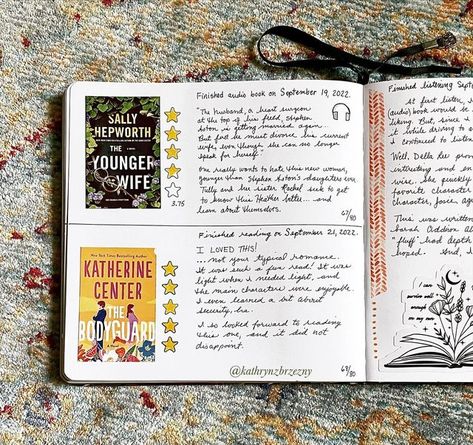 Finished audio book on September 19, 2022.
SALLY
HEPWORTH
THE
YOUNGER
WIFE
3.75
"The husband, a heart surgeon
at the top of his field, Stephen
Aston is getting married again.
But first he must divorce his current
wife, even though she can no longer
speak for herself."
One really wants to hate this new woman,
younger than Stephen Aston's daughters ever
Tully and her sister Rachel seek to get
to know this Heather better... and
learn about themselves.
67/80
Finished reading on September 21, 2022.
KATHERINE
CENTER
THE
BODYGUARD
I LOVED THIS!
...not your typical romance.
It was such a fun read! It was
light when I needed light, and
the main characters were enjoyable.
I even learned a bit about
security, ha.
I so looked forward to reading
this one, and it did not
disappoint.
68/80
@kathrynzbrzezny
Finished listening Sept
At first listen,
(audio) book would be
liking. But, since
it while driving to
continued to listen
Well, Della Lee pro
interesting and en
wise. She quickly
favorite character
character, Josie ag
This was written
Sarah Addison Al
"fluff" had depth
hoped. And, I
i can
survive well
enough
on my own